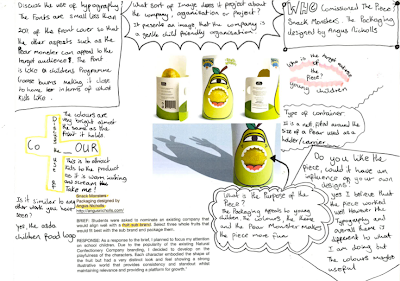 Discuss the use of typography
The Fonts are small less than
20% of the front cover so that
the other aspects such as the
Pear monster can appeal to the
target audience. The Font
is like a childrens Programme
making it close
to home for interms of what
kids like.
What sort of Image does it project about
the company, organisation or project?
It presents an image that the company is
a gentle child friendly organisation
Who Comissioned The Piece?
Snack Monsters. The Packaging
designed by Angus Nicholls
Who is the target audience
of the
Piece?
young children
Type of container
It is a net fitted around the
size of a Pear used as a
holder/carrier
Do you like the
piece, could it have an
influence on your own
designs?
yes I believe that
the piece worked
well However the
Typography and
overall theme is
different to what
I am doing but
the colours maybe
useful
What is the Purpose of the
Piece?
The Packaging appeals to young
children, the colours, the theme
and the Pear Monster makes
the piece more fun
Discuss the
COLOUR
The colours are
very bright almost
the same as the
fruit it holds
This is to attract
kids to the product
as it is warm inviting
and screams
Take me!
Is it similar to any
other works you have
seen?
yes, the asda
children food logo
Snack Monsters -
Packaging designed by
Angus Nicholls
http://angusnicholls.com/
BRIEF: Students were asked to nominate an existing company that
would align well with a fruit sub brand. Select three whole fruits that
would fit best with the sub brand and package them.
RESPONSE: As a response to the brief, I planned to focus my attention
on school children. Due to the popularity of the existing Natural
Confectionery Company branding, I decided to develop on the
playfulness of the characters. Each character embodied the shape of
the fruit but had a very distinct look and feel showing a strong
illustrative world that provides consistency and standout whilst
maintaining relevance and providing a platform for growth.